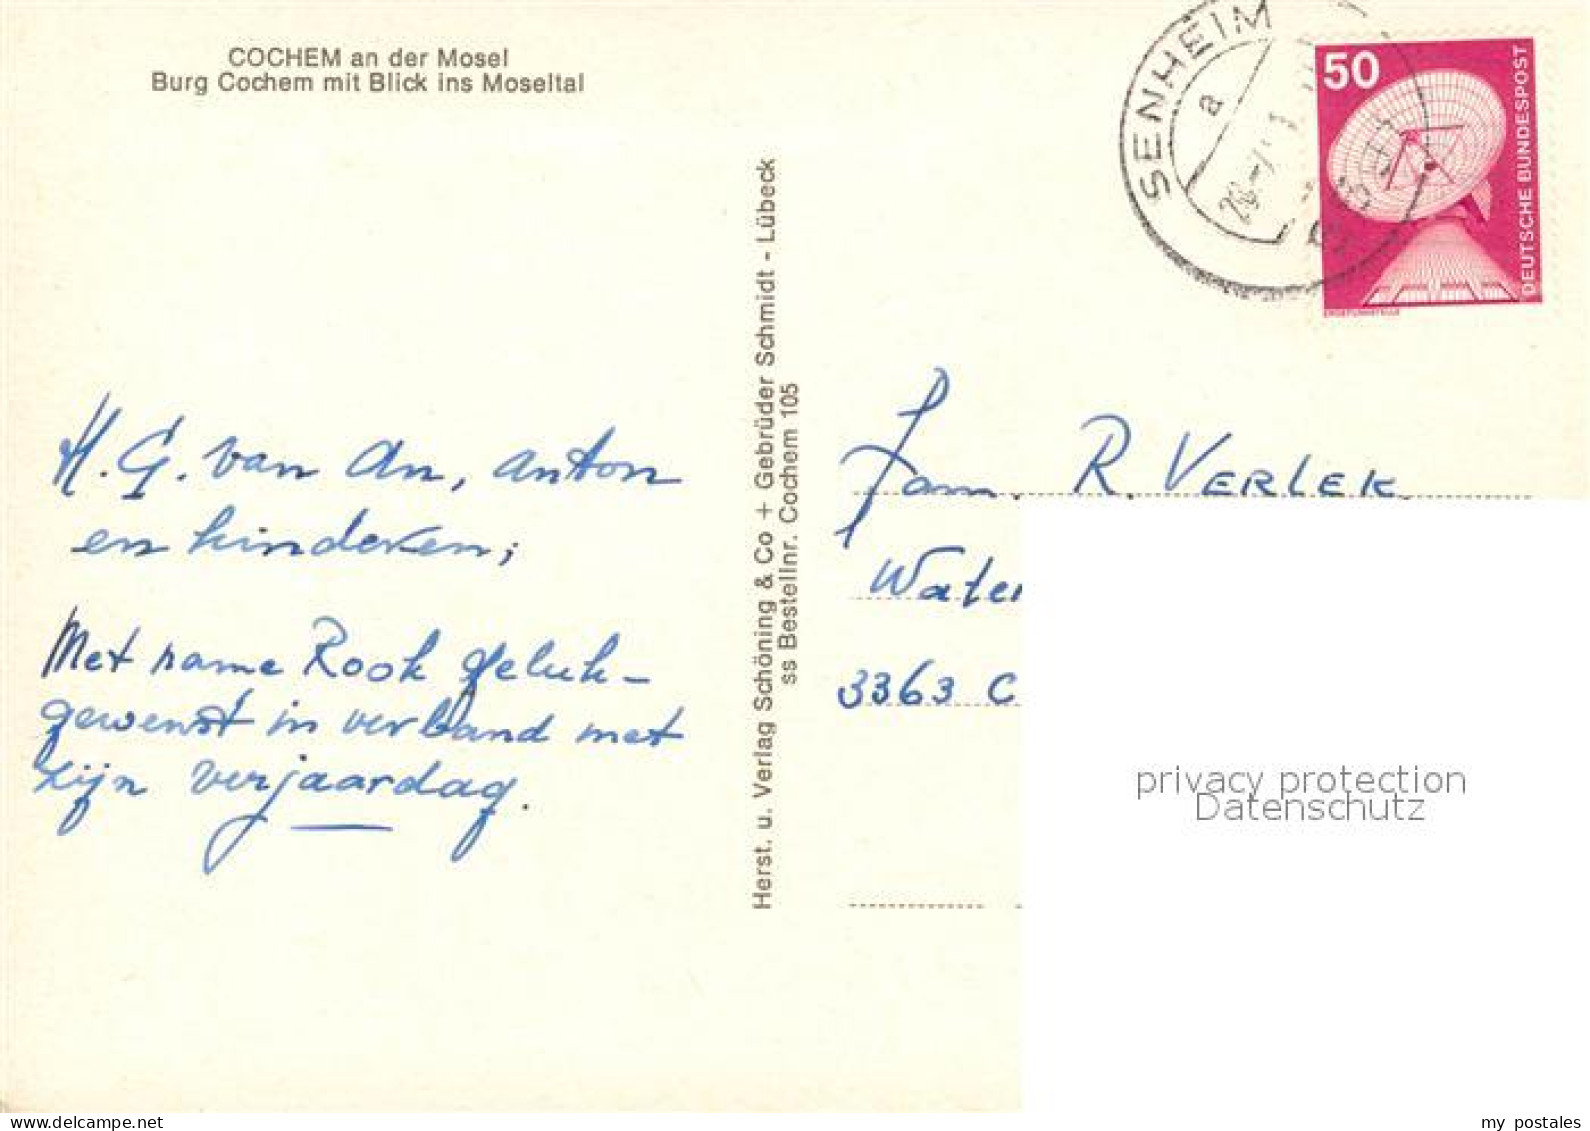 COCHEM an der Mosel
Burg Cochem mit Blick ins Moseltal
H. G. van An, Anton
en kinderen;
Met name Rook geluk-
gewenst in verband met
zijn verjaardag.
Herst. u. Verlag Schöning & Co + Gebrüder Schmidt - Lübeck
ss Bestellnr. Cochem 105
SENHEIM
a
50
DEUTSCHE BUNDESPOST
ERDEFUNKSTELLE
Fam. R. VERLEK
Water
3363 C
privacy protection
Datenschutz
my postales